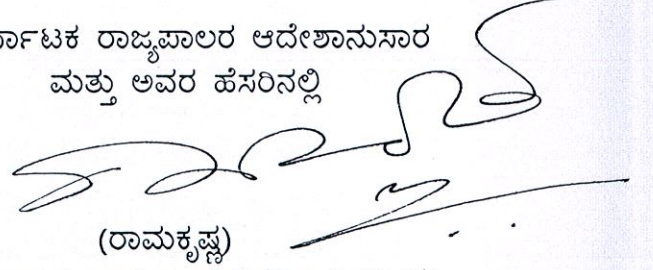 ರ್ನಾಟಕ ರಾಜ್ಯಪಾಲರ ಆದೇಶಾನುಸಾರ
ಮತ್ತು ಅವರ ಹೆಸರಿನಲ್ಲಿ
(ರಾಮಕೃಷ್ಣ)